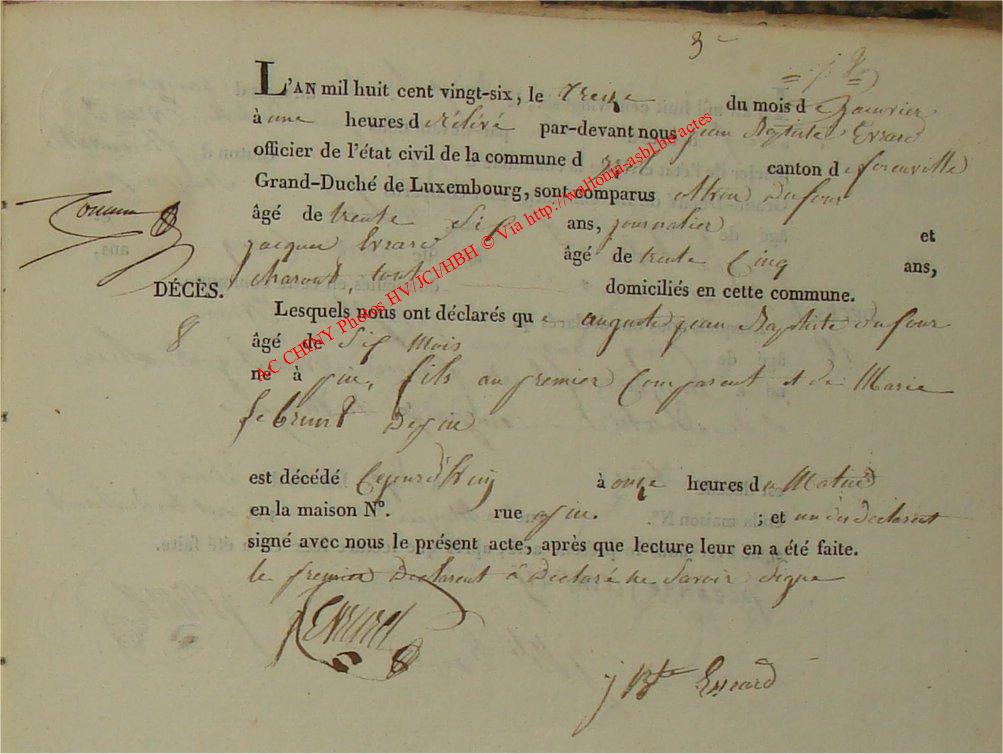 3
L'AN mil huit cent vingt-six, le treize du mois de Janvier
à une heures de rélévé par-devant nous jean Baptiste Evrard
officier de l'état civil de la commune d canton de florenville
Grand-Duché de Luxembourg, sont comparus dufour
âgé de trente Six ans, journalier et
jacques Evrard âgé de trente Cinq ans,
tout domiciliés en cette commune.
DÉCÈS.
Lesquels nous ont déclarés que auguste jean Baptiste dufour
8
âgé de Six Mois
ne à jzel, fils au premier Comparent et de Marie
De jzel
est décédé Cejourd'huy à onze heures du Matin
en la maison N°. rue jzel. ; et un des declarent
signé avec nous le présent acte, après que lecture leur en a été faite.
le premier Declarent à Declaré ne Savoir Signe
J Evrard
j Bte Evrard
AC CHINY Photos HV/JC1/HBH © Via http://wallonia-asbl.be/actes